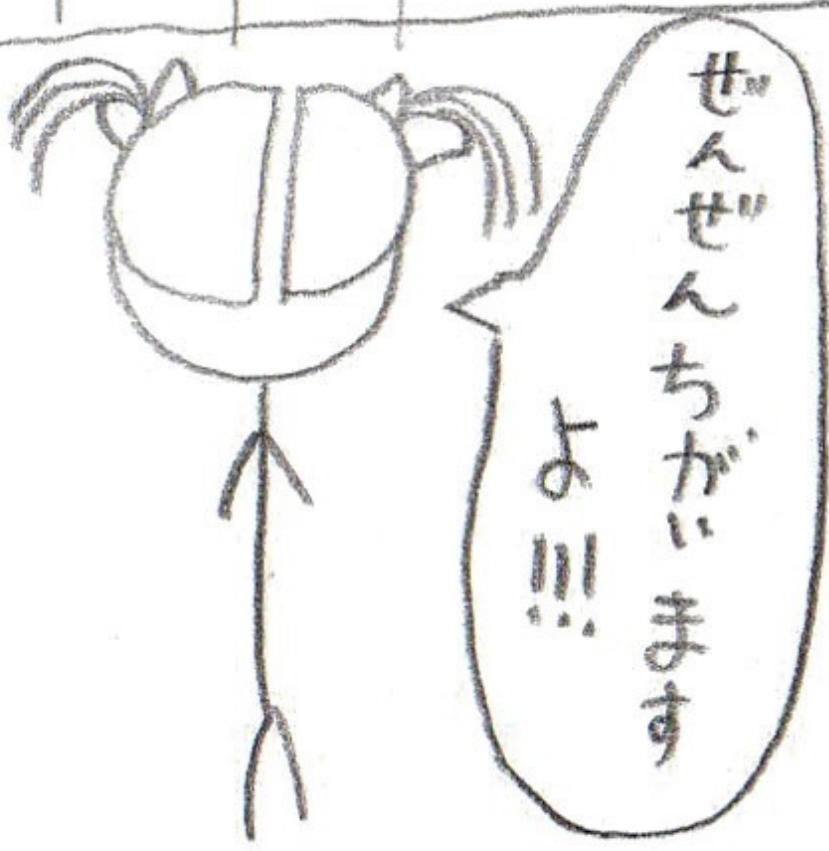 ぜんぜんちがいます
よ!!!